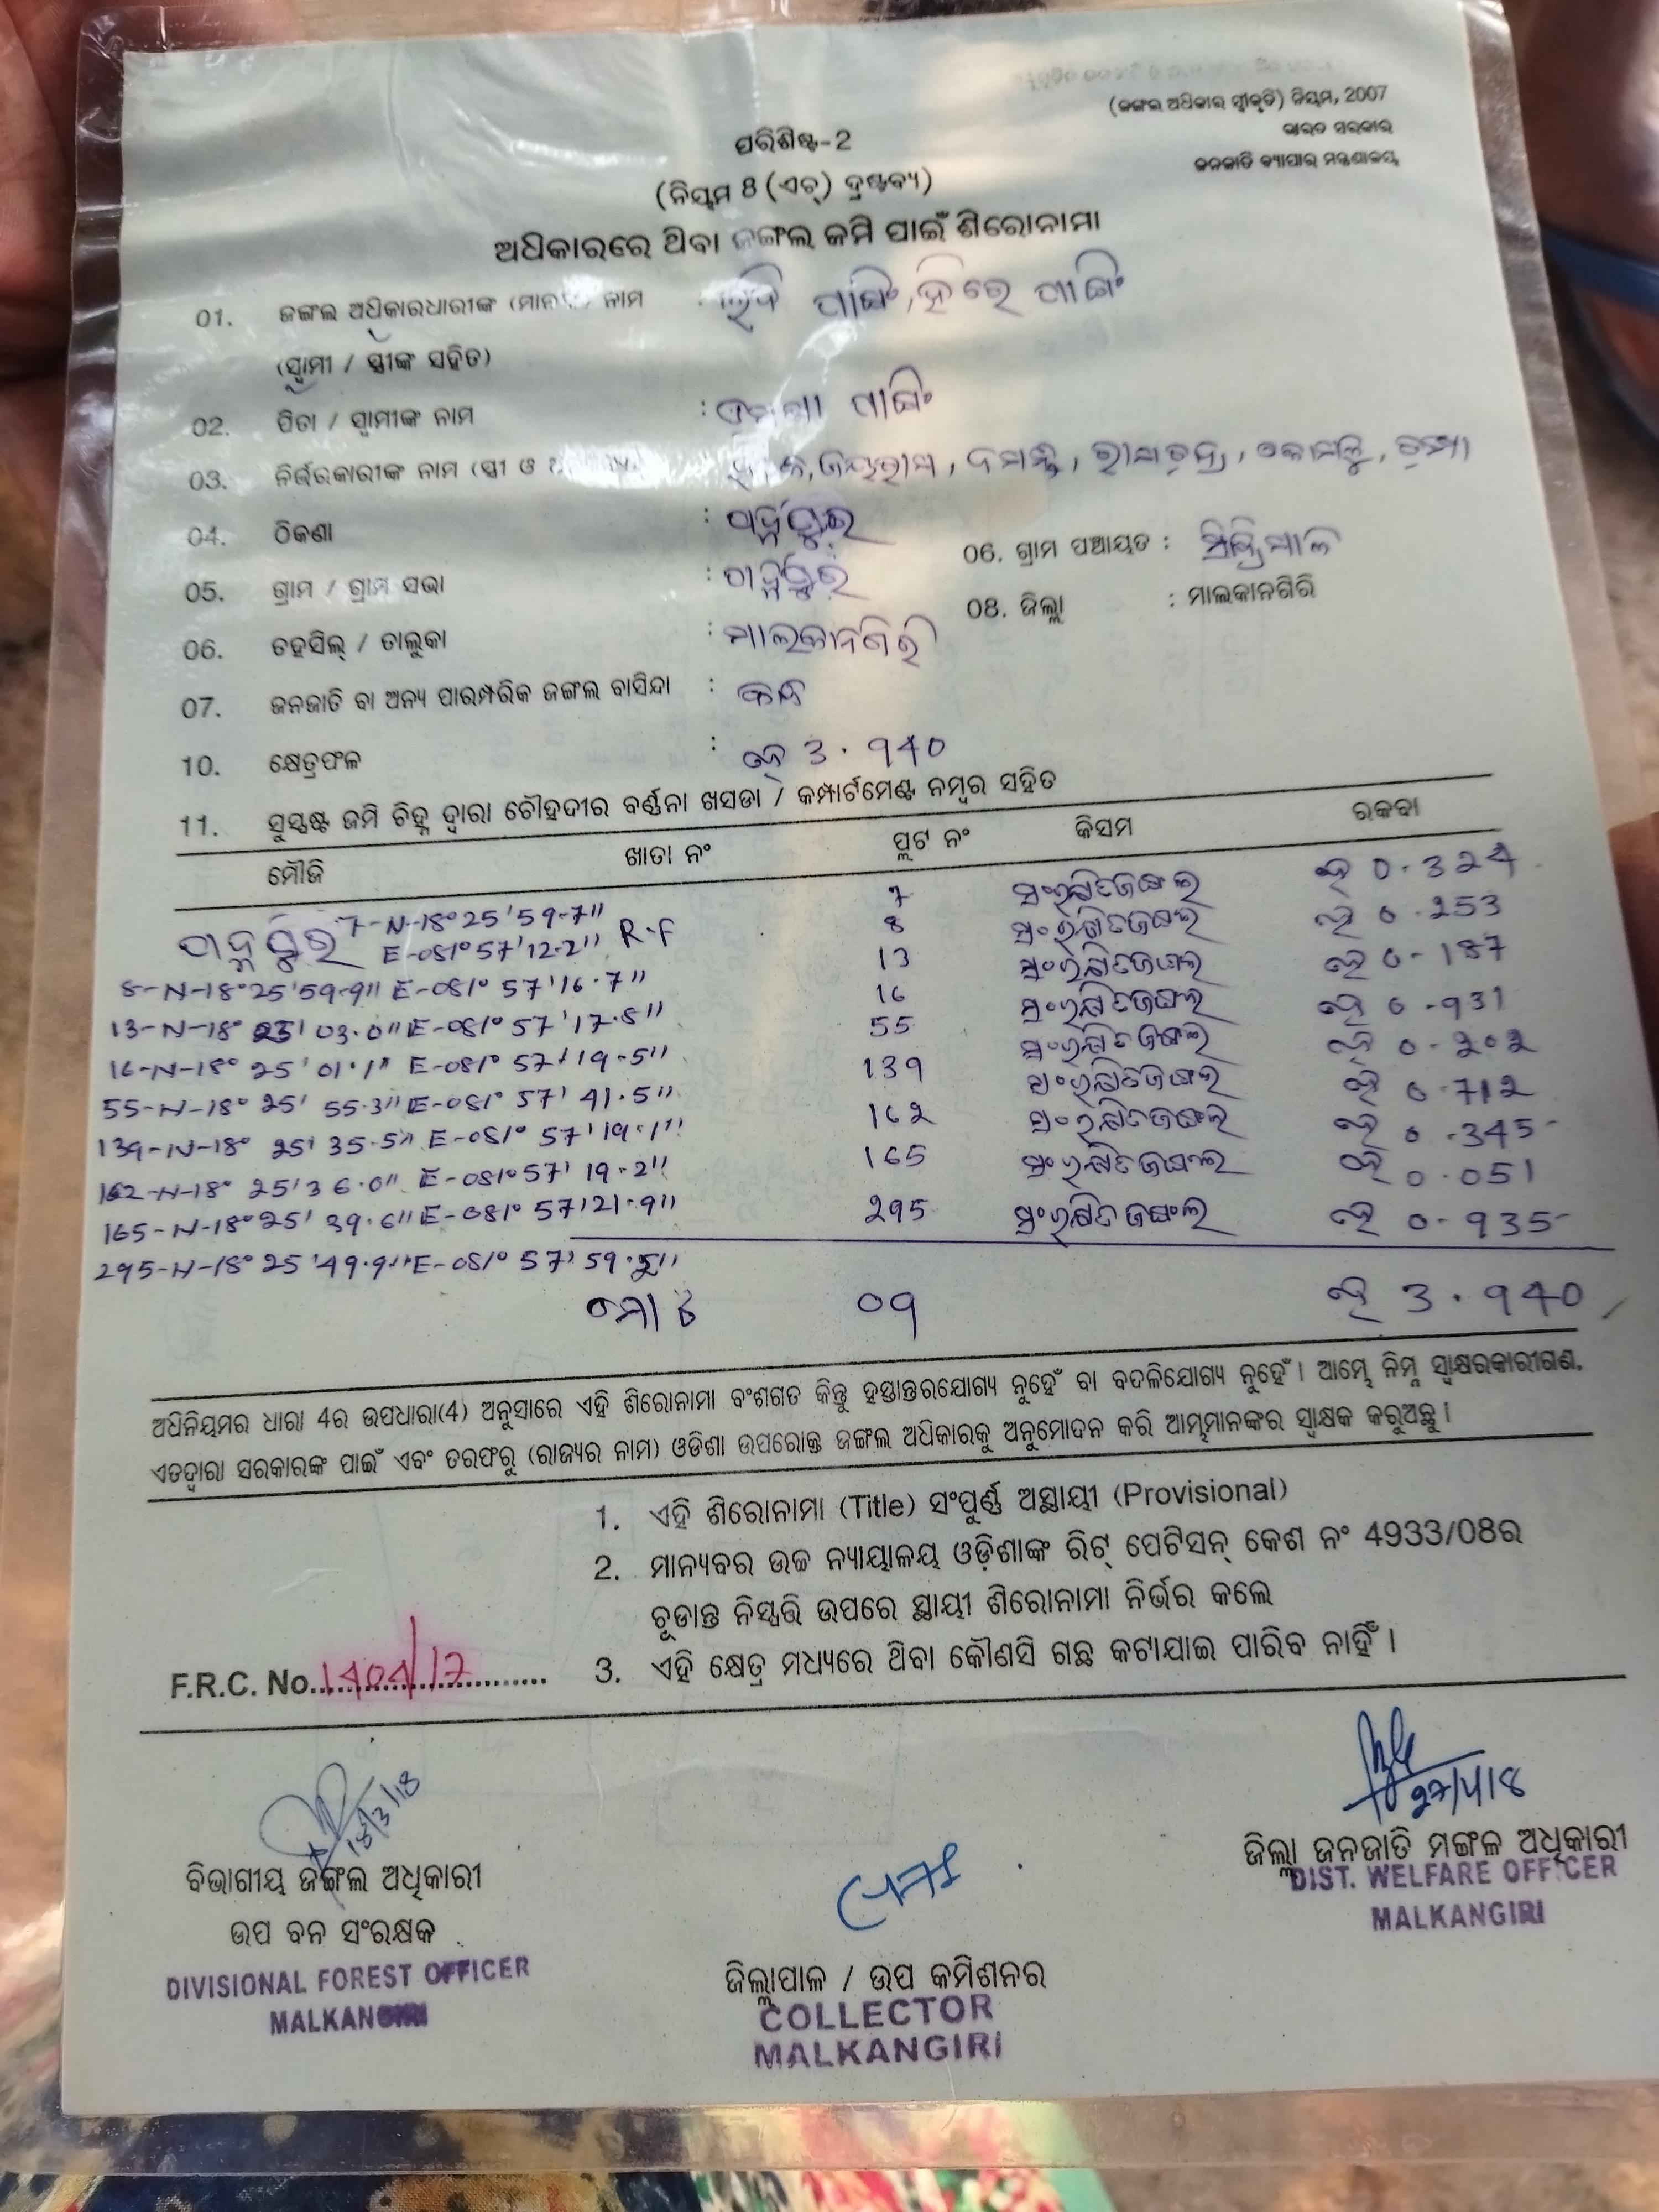 (ଜଙ୍ଗଲ ଅଧିକାର ସ୍ୱୀକୃତି) ନିୟମ, 2007
ଭାରତ ସରକାର
ଜନଜାତି ବ୍ୟାପାର ମନ୍ତ୍ରଣାଳୟ
ପରିଶିଷ୍ଟ-2
(ନିୟମ 8 (ଏଚ୍) ଦ୍ରଷ୍ଟବ୍ୟ)
ଅଧିକାରରେ ଥିବା ଜଙ୍ଗଲ ଜମି ପାଇଁ ଶିରୋନାମା
01. ଜଙ୍ଗଲ ଅଧିକାରଧାରୀଙ୍କ ନାମ :
(ସ୍ୱାମୀ / ସ୍ତ୍ରୀଙ୍କ ସହିତ)
02. ପିତା / ସ୍ୱାମୀଙ୍କ ନାମ :
03. ନିର୍ଭରକାରୀଙ୍କ ନାମ (ସ୍ତ୍ରୀ ଓ
04. ଠିକଣା :
05. ଗ୍ରାମ / ଗ୍ରାମ ସଭା : 06. ଗ୍ରାମ ପଞ୍ଚାୟତ :
06. ତହସିଲ୍ / ତାଲୁକା : ମାଲକାନଗିରି 08. ଜିଲ୍ଲା : ମାଲକାନଗିରି
07. ଜନଜାତି ବା ଅନ୍ୟ ପାରମ୍ପରିକ ଜଙ୍ଗଲ ବାସିନ୍ଦା :
10. କ୍ଷେତ୍ରଫଳ : ହେ 3.940
11. ସୁସ୍ପଷ୍ଟ ଜମି ଚିହ୍ନ ଦ୍ୱାରା ଚୌହଦୀର ବର୍ଣ୍ଣନା ଖସଡା / କମ୍ପାର୍ଟମେଣ୍ଟ ନମ୍ବର ସହିତ
ମୌଜି ଖାତା ନଂ ପ୍ଲଟ ନଂ କିସମ ରକବା
7-N-18°25'59.7" 7 ସଂରକ୍ଷିତ ଜଙ୍ଗଲ ହେ 0.324
E-081°57'12.2" R.F 8 ସଂରକ୍ଷିତ ଜଙ୍ଗଲ ହେ 0.253
8-N-18°25'59.9" E-081° 57'16.7" 13 ସଂରକ୍ଷିତ ଜଙ୍ଗଲ ହେ 0.187
13-N-18° 25' 03.0" E-081° 57'17.8" 16 ସଂରକ୍ଷିତ ଜଙ୍ଗଲ ହେ 0.931
16-N-18° 25' 01.1" E-081° 57'19.5" 55 ସଂରକ୍ଷିତ ଜଙ୍ଗଲ ହେ 0.202
55-N-18° 25' 55.3" E-081° 57' 41.5" 139 ସଂରକ୍ଷିତ ଜଙ୍ଗଲ ହେ 0.712
139-N-18° 25' 35.5" E-081° 57'19.1" 162 ସଂରକ୍ଷିତ ଜଙ୍ଗଲ ହେ 0.345
162-N-18° 25'36.0" E-081° 57' 19.2" 165 ସଂରକ୍ଷିତ ଜଙ୍ଗଲ ହେ 0.051
165-N-18° 25' 39.6" E-081° 57'21.9" 295 ସଂରକ୍ଷିତ ଜଙ୍ଗଲ ହେ 0.935
295-N-18° 25'49.9" E-081° 57' 59.5"
ମୋଟ 09 ହେ 3.940
ଅଧିନିୟମର ଧାରା 4ର ଉପଧାରା(4) ଅନୁସାରେ ଏହି ଶିରୋନାମା ବଂଶଗତ କିନ୍ତୁ ହସ୍ତାନ୍ତରଯୋଗ୍ୟ ନୁହେଁ ବା ବଦଳିଯୋଗ୍ୟ ନୁହେଁ । ଆମ୍ଭେ ନିମ୍ନ ସ୍ୱାକ୍ଷରକାରୀଗଣ,
ଏତଦ୍ଦ୍ୱାରା ସରକାରଙ୍କ ପାଇଁ ଏବଂ ତରଫରୁ (ରାଜ୍ୟର ନାମ) ଓଡିଶା ଉପରୋକ୍ତ ଜଙ୍ଗଲ ଅଧିକାରକୁ ଅନୁମୋଦନ କରି ଆମ୍ଭମାନଙ୍କର ସ୍ୱାକ୍ଷକ କରୁଅଛୁ ।
1. ଏହି ଶିରୋନାମା (Title) ସଂପୂର୍ଣ୍ଣ ଅସ୍ଥାୟୀ (Provisional)
2. ମାନ୍ୟବର ଉଚ୍ଚ ନ୍ୟାୟାଳୟ ଓଡ଼ିଶାଙ୍କ ରିଟ୍ ପେଟିସନ୍ କେଶ ନଂ 4933/08ର
ଚୂଡାନ୍ତ ନିସ୍ପତ୍ତି ଉପରେ ସ୍ଥାୟୀ ଶିରୋନାମା ନିର୍ଭର କଲେ
F.R.C. No. 1404/17 3. ଏହି କ୍ଷେତ୍ର ମଧ୍ୟରେ ଥିବା କୌଣସି ଗଛ କଟାଯାଇ ପାରିବ ନାହିଁ ।
18/3/18
27/4/18
ବିଭାଗୀୟ ଜଙ୍ଗଲ ଅଧିକାରୀ
ଉପ ବନ ସଂରକ୍ଷକ
DIVISIONAL FOREST OFFICER
MALKANGIRI
ଜିଲ୍ଲାପାଳ / ଉପ କମିଶନର
COLLECTOR
MALKANGIRI
ଜିଲ୍ଲା ଜନଜାତି ମଙ୍ଗଳ ଅଧିକାରୀ
DIST. WELFARE OFFICER
MALKANGIRI